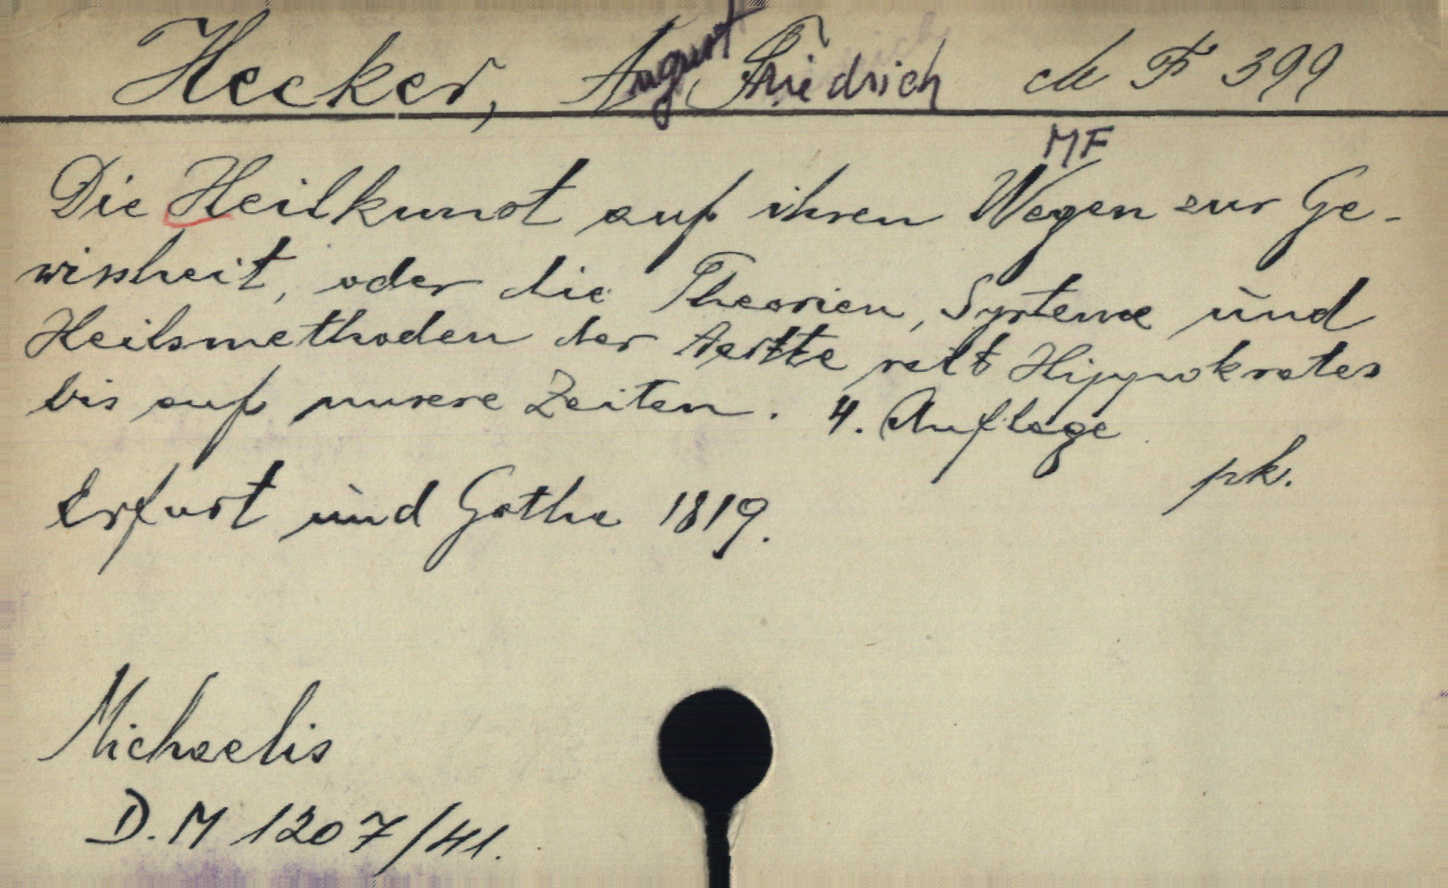 Hecker, August Friedrich ch F 399
MF
Die Heilkunst auf ihren Wegen zur Ge-
wissheit, oder die Theorien, Systeme und
Heilsmethoden der Aerzte seit Hippokrates
bis auf unsere Zeiten. 4. Auflage
pk.
Erfurt und Gotha 1819.
Michaelis
D. M 1207/41.